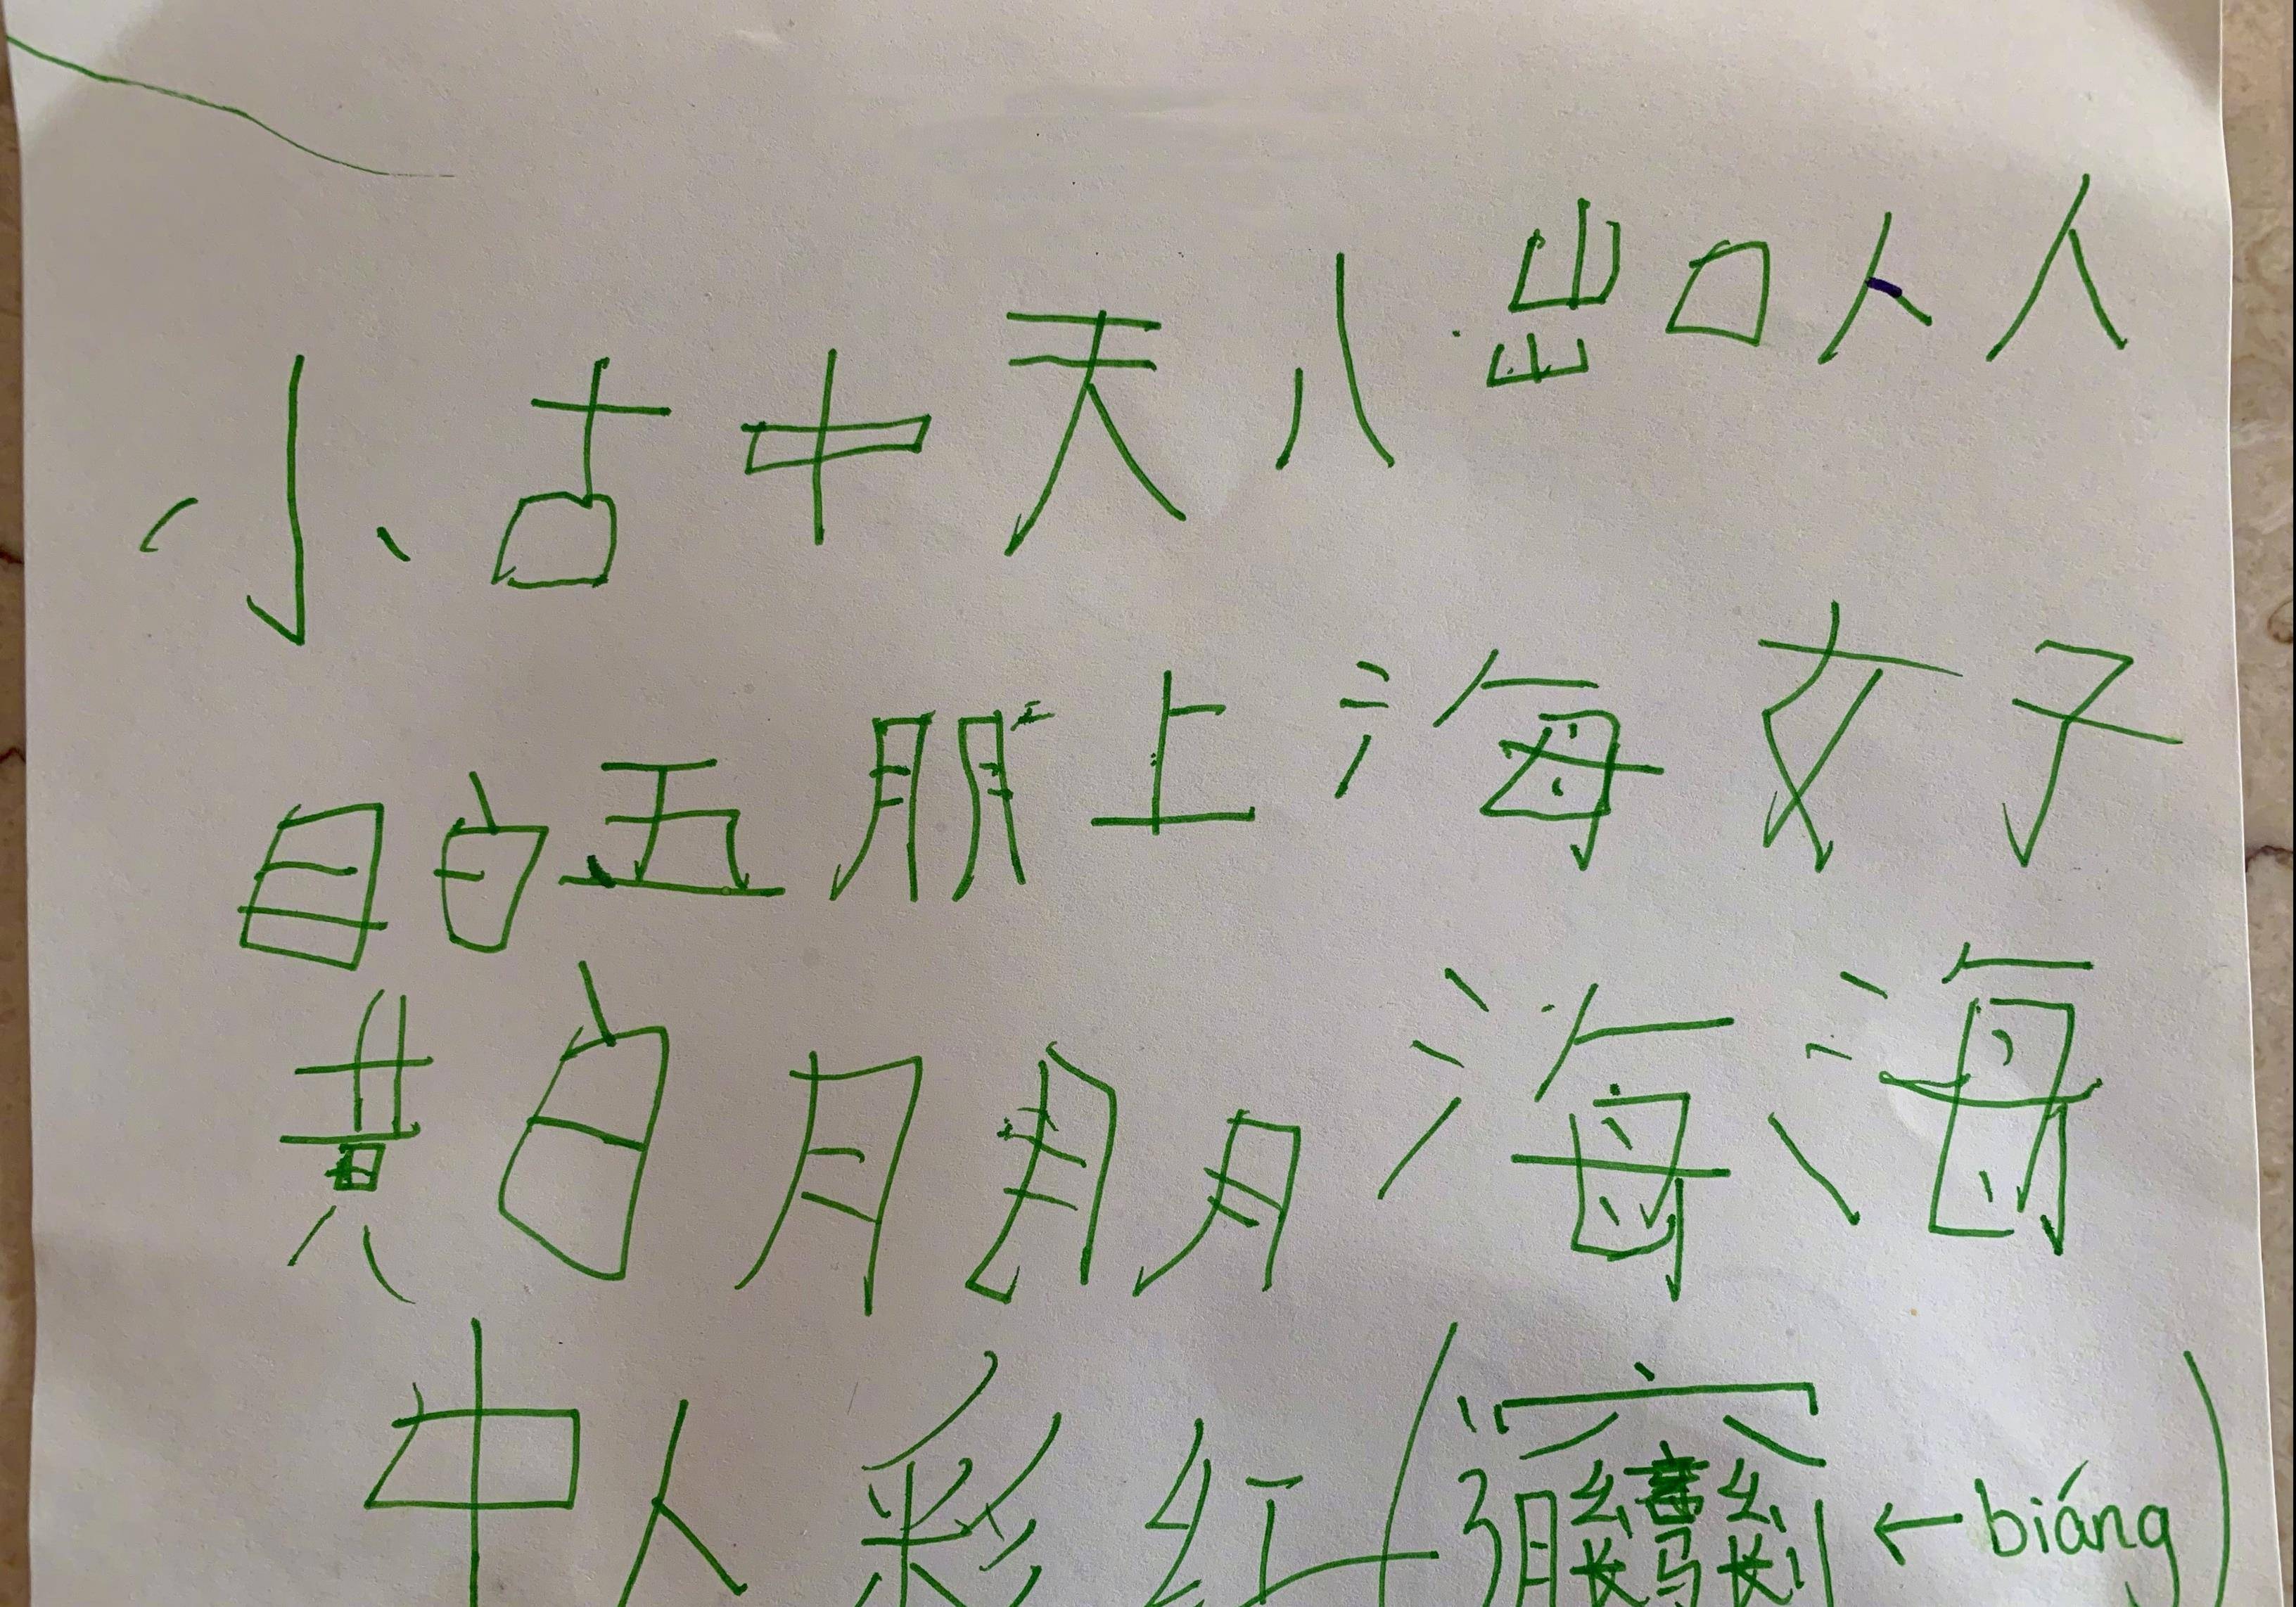 小古中天八出口人人
目白五朋上海女子
黄白月月月海海
中人彩红(𰻝←biáng)